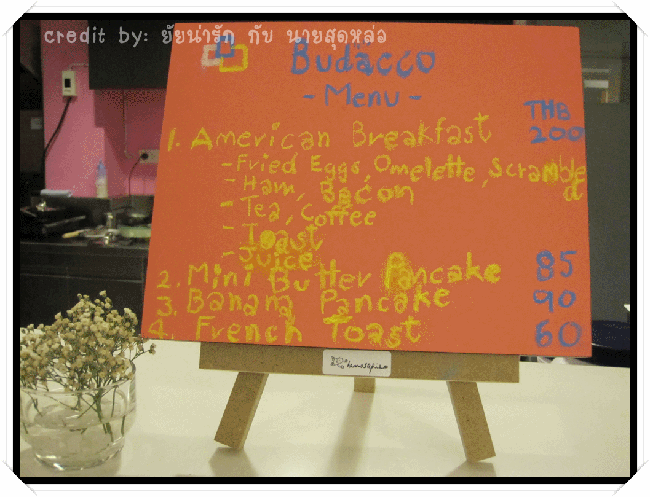 credit by: ยัยน่ารัก กับ นายสุดหล่อ
Budacco
- Menu -
THB
1. American Breakfast 200
- Fried Eggs, Omelette, Scrambled
- Ham, Bacon
- Tea, Coffee
- Toast
- Juice
2. Mini Butter Pancake 85
3. Banana Pancake 90
4. French Toast 60